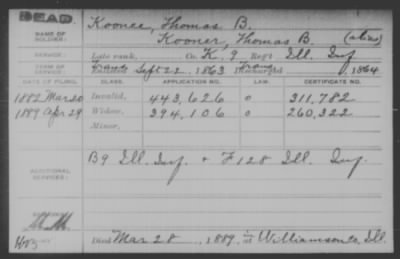 DEAD.
NAME OF SOLDIER:
Koonce, Thomas B.
Kooner, Thomas B. (alias)
SERVICE:
Late rank, Co. K, 9 Reg't Ill. Inf
TERM OF SERVICE:
Trans Trans
Enlisted Sept 22, 1863 Discharged , 1864
DATE OF FILING. CLASS. APPLICATION NO. LAW. CERTIFICATE NO.
1882 Mar 20 Invalid, 443,626 0 311,782
1889 Apr 29 Widow, 394,106 0 260,322
Minor,
ADDITIONAL SERVICES:
B 9 Ill. Inf. & F 128 Ill. Inf.
REMARKS:
Died Mar 28, 1889, in at Williamson Co, Ill.